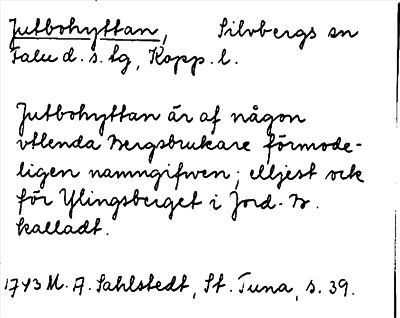 Jutbohyttan, Silvbergs sn
Falu d. s. lg, Kopp. l.
Jutbohyttan är af någon
vtlenda Bergsbrukare förmode-
ligen namngifwen; elljest ock
för Ylingsberget i Jord-B.
kalladt.
1743 M. A. Sahlstedt, St. Tuna, s. 39.